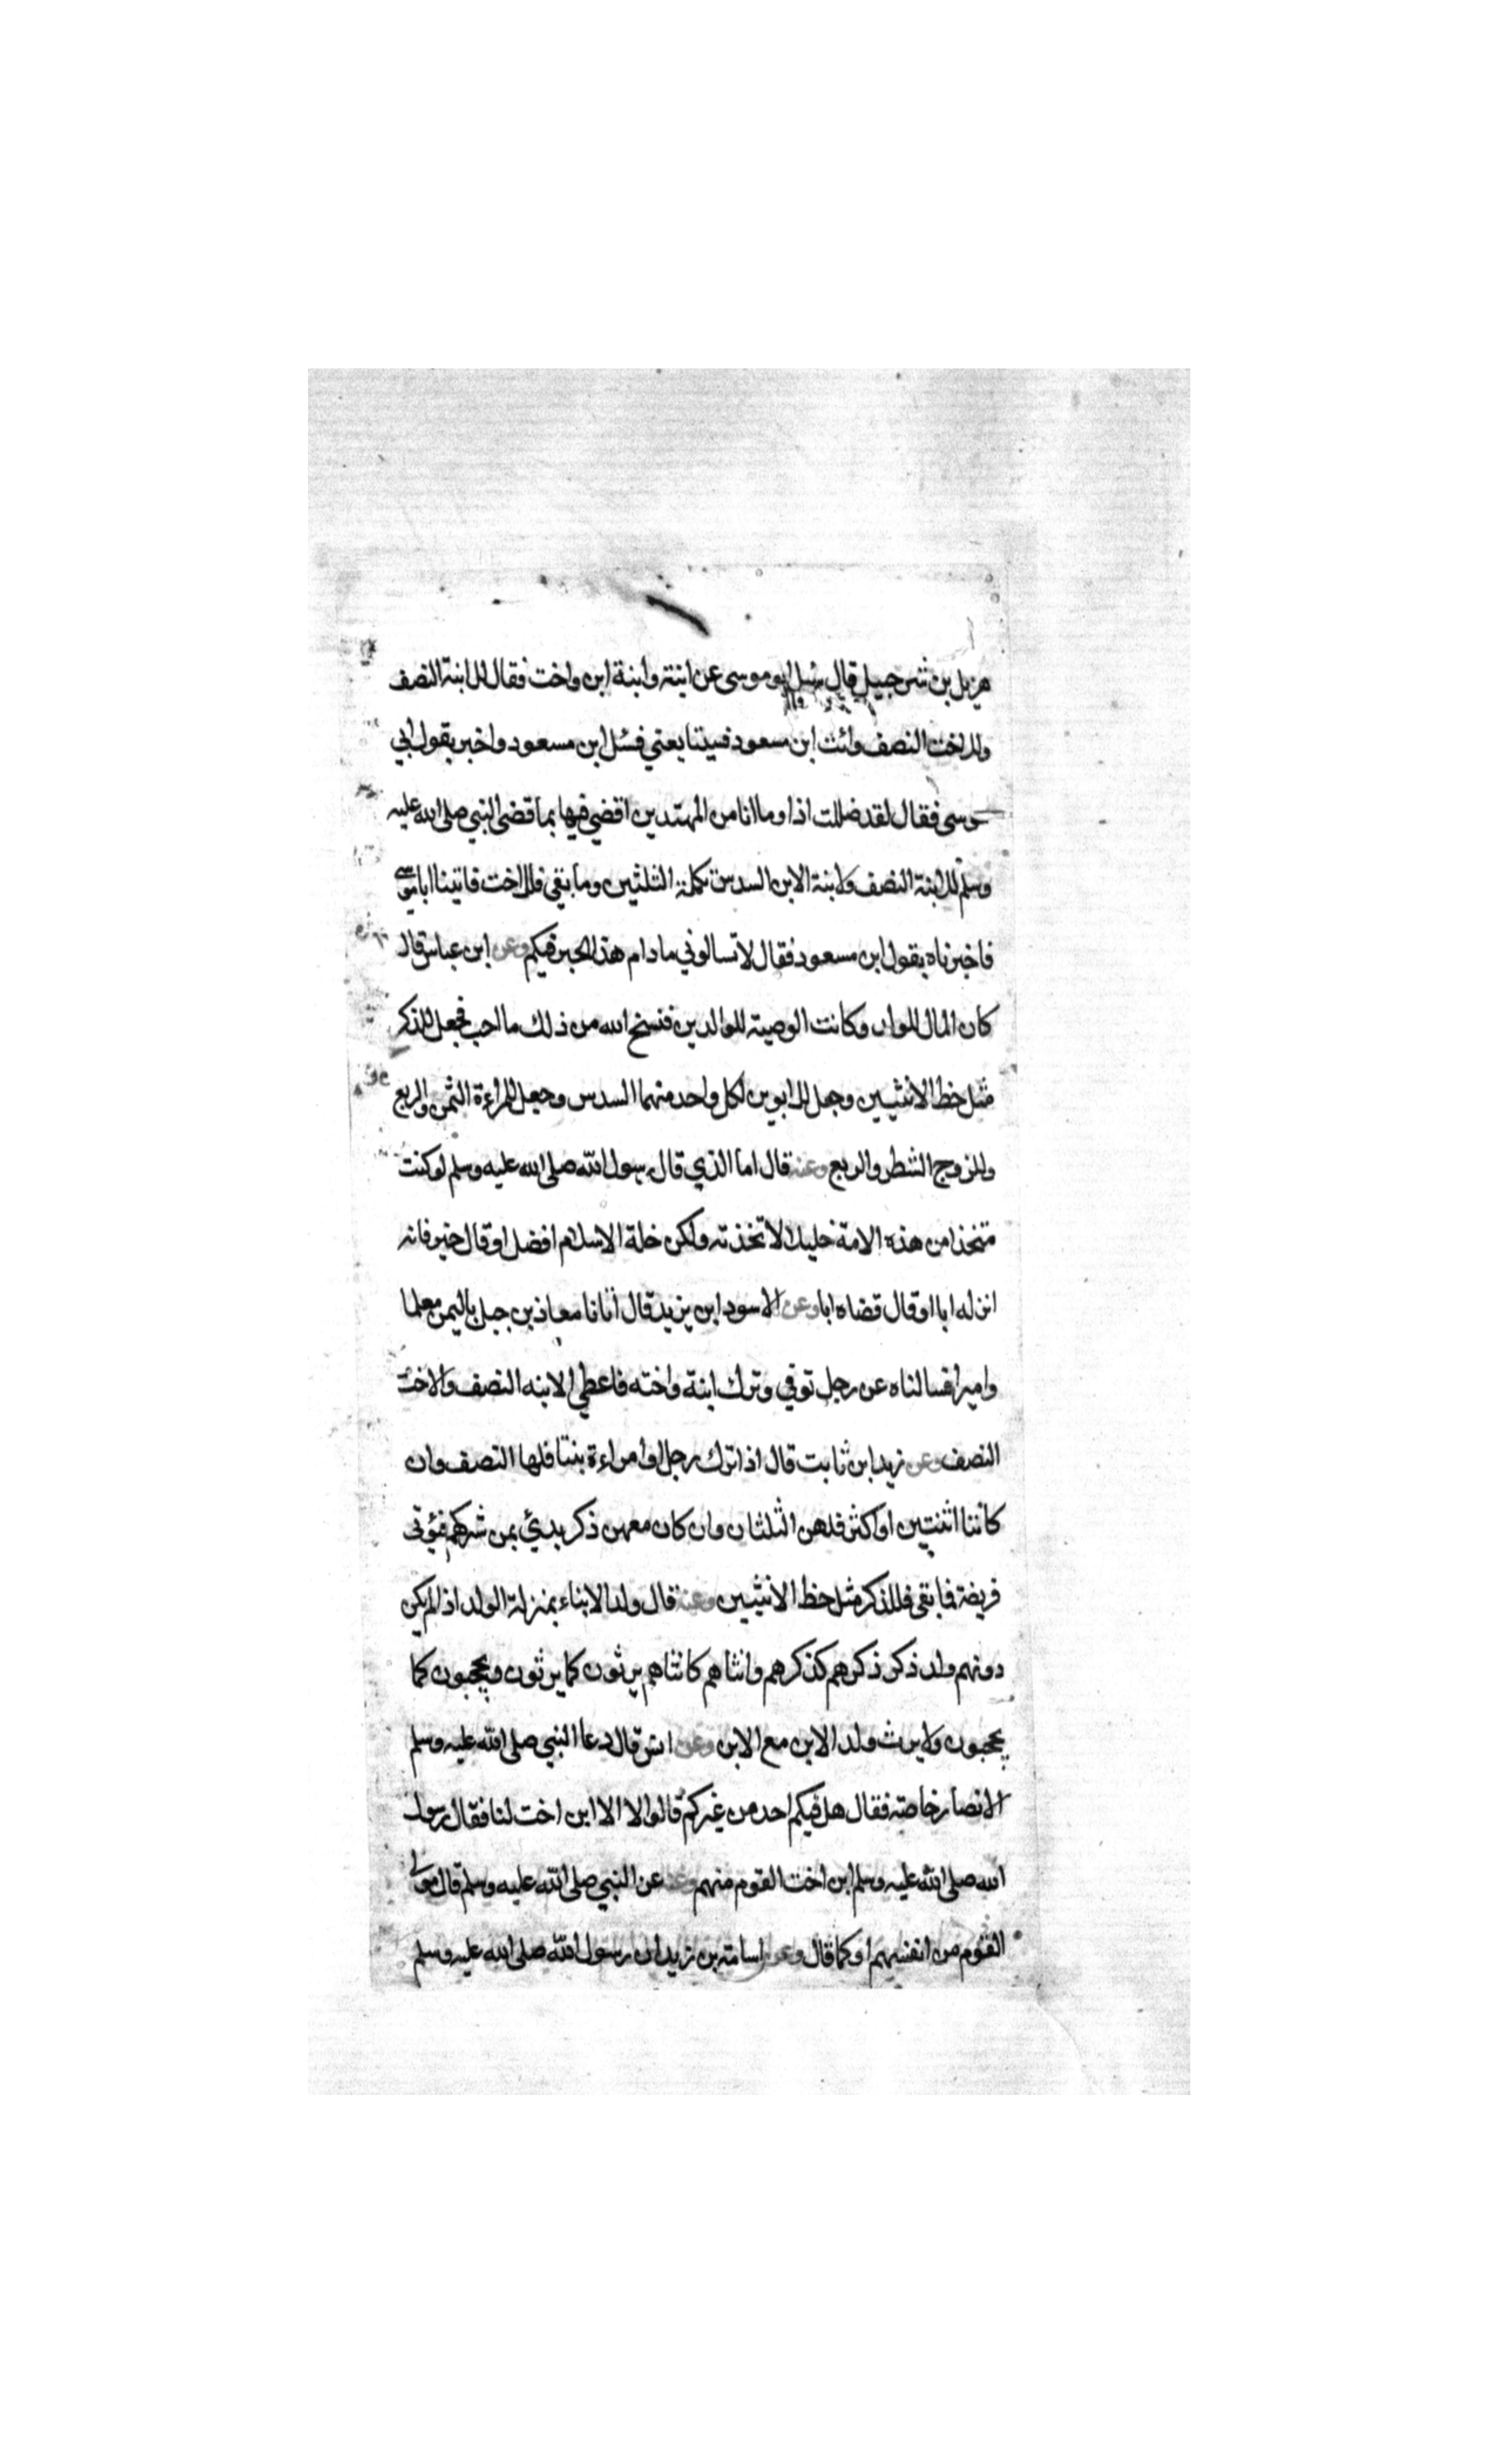 هزيل بن شرحبيل قال سئل ابو موسى عن ابنة وابنة ابن واخت فقال للابنة النصف
وللاخت النصف وائت ابن مسعود فسيتابعني فسئل ابن مسعود واخبر بقول ابي
موسى فقال لقد ضللت اذا وما انا من المهتدين اقضي فيها بما قضى النبي صلى الله عليه
وسلم للابنة النصف ولابنة الابن السدس تكملة الثلثين وما بقي فللاخت فاتينا ابا موسى
فاخبرناه بقول ابن مسعود فقال لا تسالوني ما دام هذا الحبر فيكم وعن ابن عباس قال
كان المال للولد وكانت الوصية للوالدين فنسخ الله من ذلك ما احب فجعل للذكر
مثل حظ الانثيين وجعل للابوين لكل واحد منهما السدس وجعل للمراءة الثمن والربع
وللزوج الشطر والربع وعنه قال اما الذي قال رسول الله صلى الله عليه وسلم لو كنت
متخذا من هذه الامة خليلا لاتخذته ولكن خلة الاسلام افضل او قال خير فانه
انزله ابا او قال قضاه ابا وعن الاسود ابن يزيد قال اتانا معاذ بن جبل باليمن معلما
واميرا فسالناه عن رجل توفي وترك ابنة واخته فاعطى الابنه النصف والاخت
النصف وعن زيد ابن ثابت قال اذا ترك رجل او امراءة بنتا فلها النصف وان
كانتا اثنتين او اكثر فلهن الثلثان وان كان معهن ذكر بدئ بمن شركهم فيؤتى
فريضة فما بقي فللذكر مثل حظ الانثيين وعنه قال ولد الابناء بمنزلة الولد اذا لم يكن
دونهم ولد ذكر ذكرهم كذكرهم وانثاهم كانثاهم يرثون كما يرثون ويحجبون كما
يحجبون ولا يرث ولد الابن مع الابن وعن انس قال دعا النبي صلى الله عليه وسلم
الانصار خاصة فقال هل فيكم احد من غيركم قالوا لا الا ابن اخت لنا فقال رسول
الله صلى الله عليه وسلم ابن اخت القوم منهم وعنه عن النبي صلى الله عليه وسلم قال مولى
القوم من انفسهم او كما قال وعن اسامة بن زيد ان رسول الله صلى الله عليه وسلم